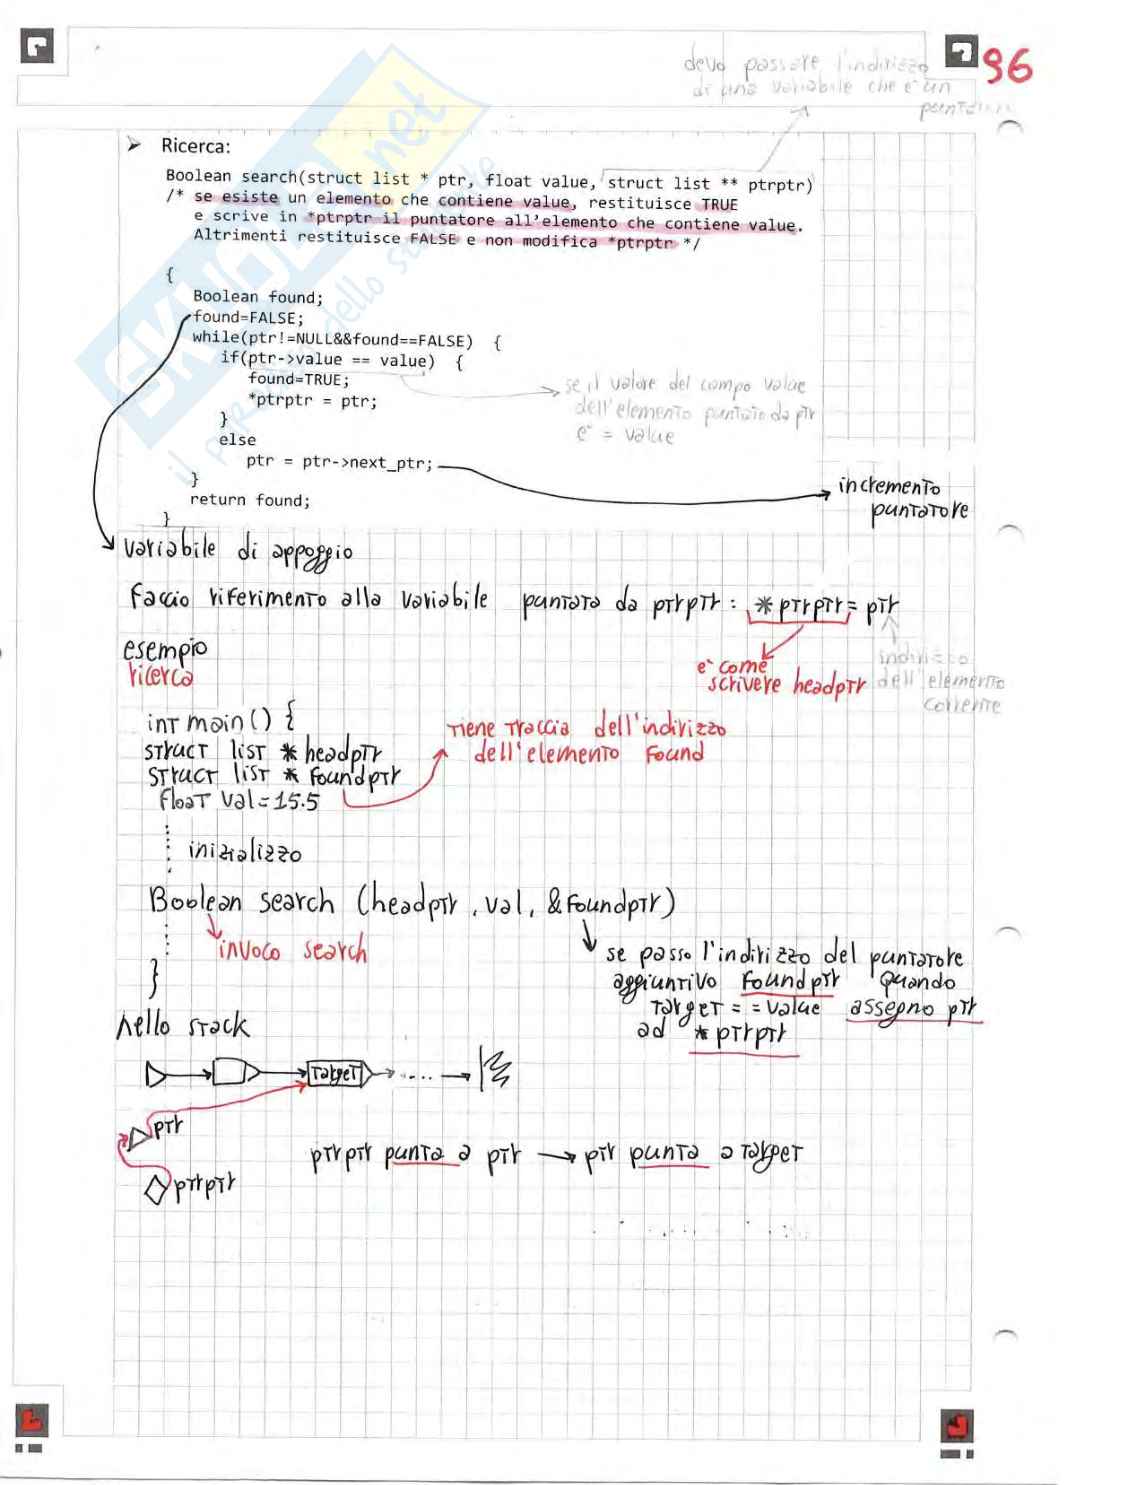 devo passare l'indirizzo
di una variabile che e' un
96
➤ Ricerca:
Boolean search(struct list * ptr, float value, struct list ** ptrptr)
/* se esiste un elemento che contiene value, restituisce TRUE
e scrive in *ptrptr il puntatore all'elemento che contiene value.
Altrimenti restituisce FALSE e non modifica *ptrptr */
{
Boolean found;
found=FALSE;
while(ptr!=NULL&&found==FALSE) {
if(ptr->value == value) {
found=TRUE;
*ptrptr = ptr;
}
else
ptr = ptr->next_ptr;
}
return found;
}
se il valore del campo value
dell'elemento puntato da ptr
e' = value
incremento
puntatore
variabile di appoggio
Faccio riferimento alla variabile puntata da ptrptr : *ptrptr = ptr
e' come
scrivere headptr
indirizzo
dell'elemento
corrente
esempio
ricerca
int main() {
struct list * headptr
struct list * foundptr
float val = 15.5
tiene traccia dell'indirizzo
dell'elemento found
inizializzo
Boolean search (headptr, val, &foundptr)
invoco search
}
se passo l'indirizzo del puntatore
aggiuntivo foundptr quando
target == value assegno ptr
ad * ptrptr
nello stack
target
ptr
ptrptr
ptrptr punta a ptr → ptr punta a target
SKUOLA.net
il portale dello studente